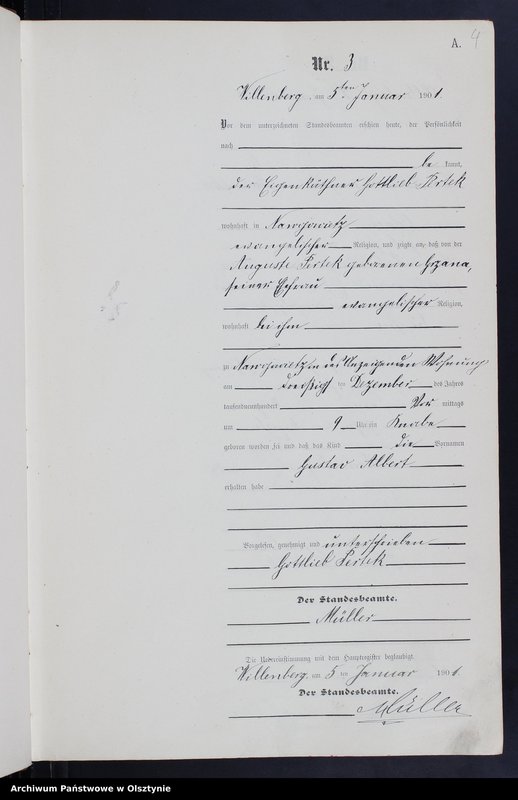 A. 4
Nr. 3
Willenberg, am 5ten Januar 1901.
Vor dem unterzeichneten Standesbeamten erschien heute, der Persönlichkeit
nach
be kannt,
der Eigenkäthner Gottlieb Pertek
wohnhaft in
evangelischer Religion, und zeigte an, daß von der
Auguste Pertek geborenen Gzana,
seiner Ehefrau
evangelischer Religion,
wohnhaft bei ihm
zu in des Anzeigenden Wohnung
am dreißigsten Dezember des Jahres
tausendneunhundert Vor mittags
um 9 Uhr ein Knabe
geboren worden sei und daß das Kind die Vornamen
Gustav Albert
erhalten habe
Vorgelesen, genehmigt und unterschrieben
Gottlieb Pertek
Der Standesbeamte.
Müller
Die Uebereinstimmung mit dem Hauptregister beglaubigt.
Willenberg, am 5 ten Januar 1901.
Der Standesbeamte.
Müller
Archiwum Państwowe w Olsztynie